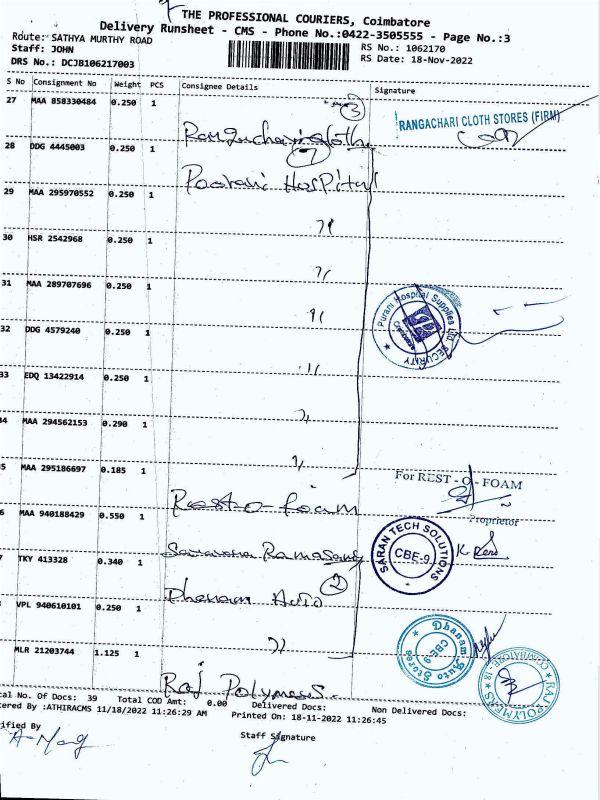 THE PROFESSIONAL COURIERS, Coimbatore
Delivery Runsheet - CMS - Phone No.:0422-3505555 - Page No.:3
Route: SATHYA MURTHY ROAD
Staff: JOHN
DRS No.: DCJB106217003
RS No.: 1062170
RS Date: 18-Nov-2022
S No Consignment No Weight PCS Consignee Details Signature
27 MAA 858330484 0.250 1
3
Rangachari cloth
RANGACHARI CLOTH STORES (FIRM)
28 DDG 4445003 0.250 1
7
Poorani Hospital
29 MAA 295970552 0.250 1
30 HSR 2542968 0.250 1
31 MAA 289707696 0.250 1
Purani Hospital Supplies Ltd
SECURITY
32 DDG 4579240 0.250 1
33 EDQ 13422914 0.250 1
34 MAA 294562153 0.290 1
35 MAA 295186697 0.185 1
Rest-o-foam
For REST - O - FOAM
Proprietor
6 MAA 940188429 0.550 1
SARAN TECH SOLUTIONS
CBE-9
7 TKY 413328 0.340 1
Dhanam Auto
2
VPL 940610101 0.250 1
Dhanam Auto Stores
CBE-9
MLR 21203744 1.125 1
Raj Polymers
RAJ POLYMERS
COIMBATORE - 18
al No. of Docs: 39 Total COD Amt: 0.00 Delivered Docs: Non Delivered Docs:
tered By :ATHIRACMS 11/18/2022 11:26:29 AM Printed On: 18-11-2022 11:26:45
ified By
Staff Signature